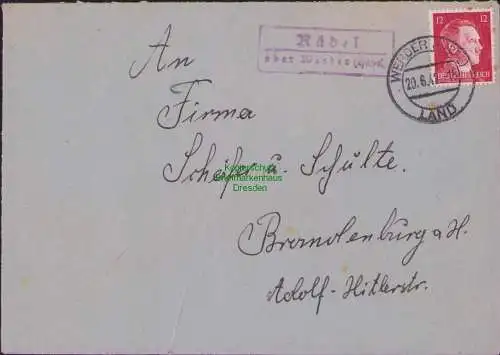 Rädel
über Werder (Havel)
12 12
DEUTSCHES REICH
WERDER
20.6.4
LAND
An
Firma
Schäfer u. Schulte.
Kopierschutz
Briefmarkenhaus
Dresden
Brandenburg a. H.
Adolf-Hitlerstr.